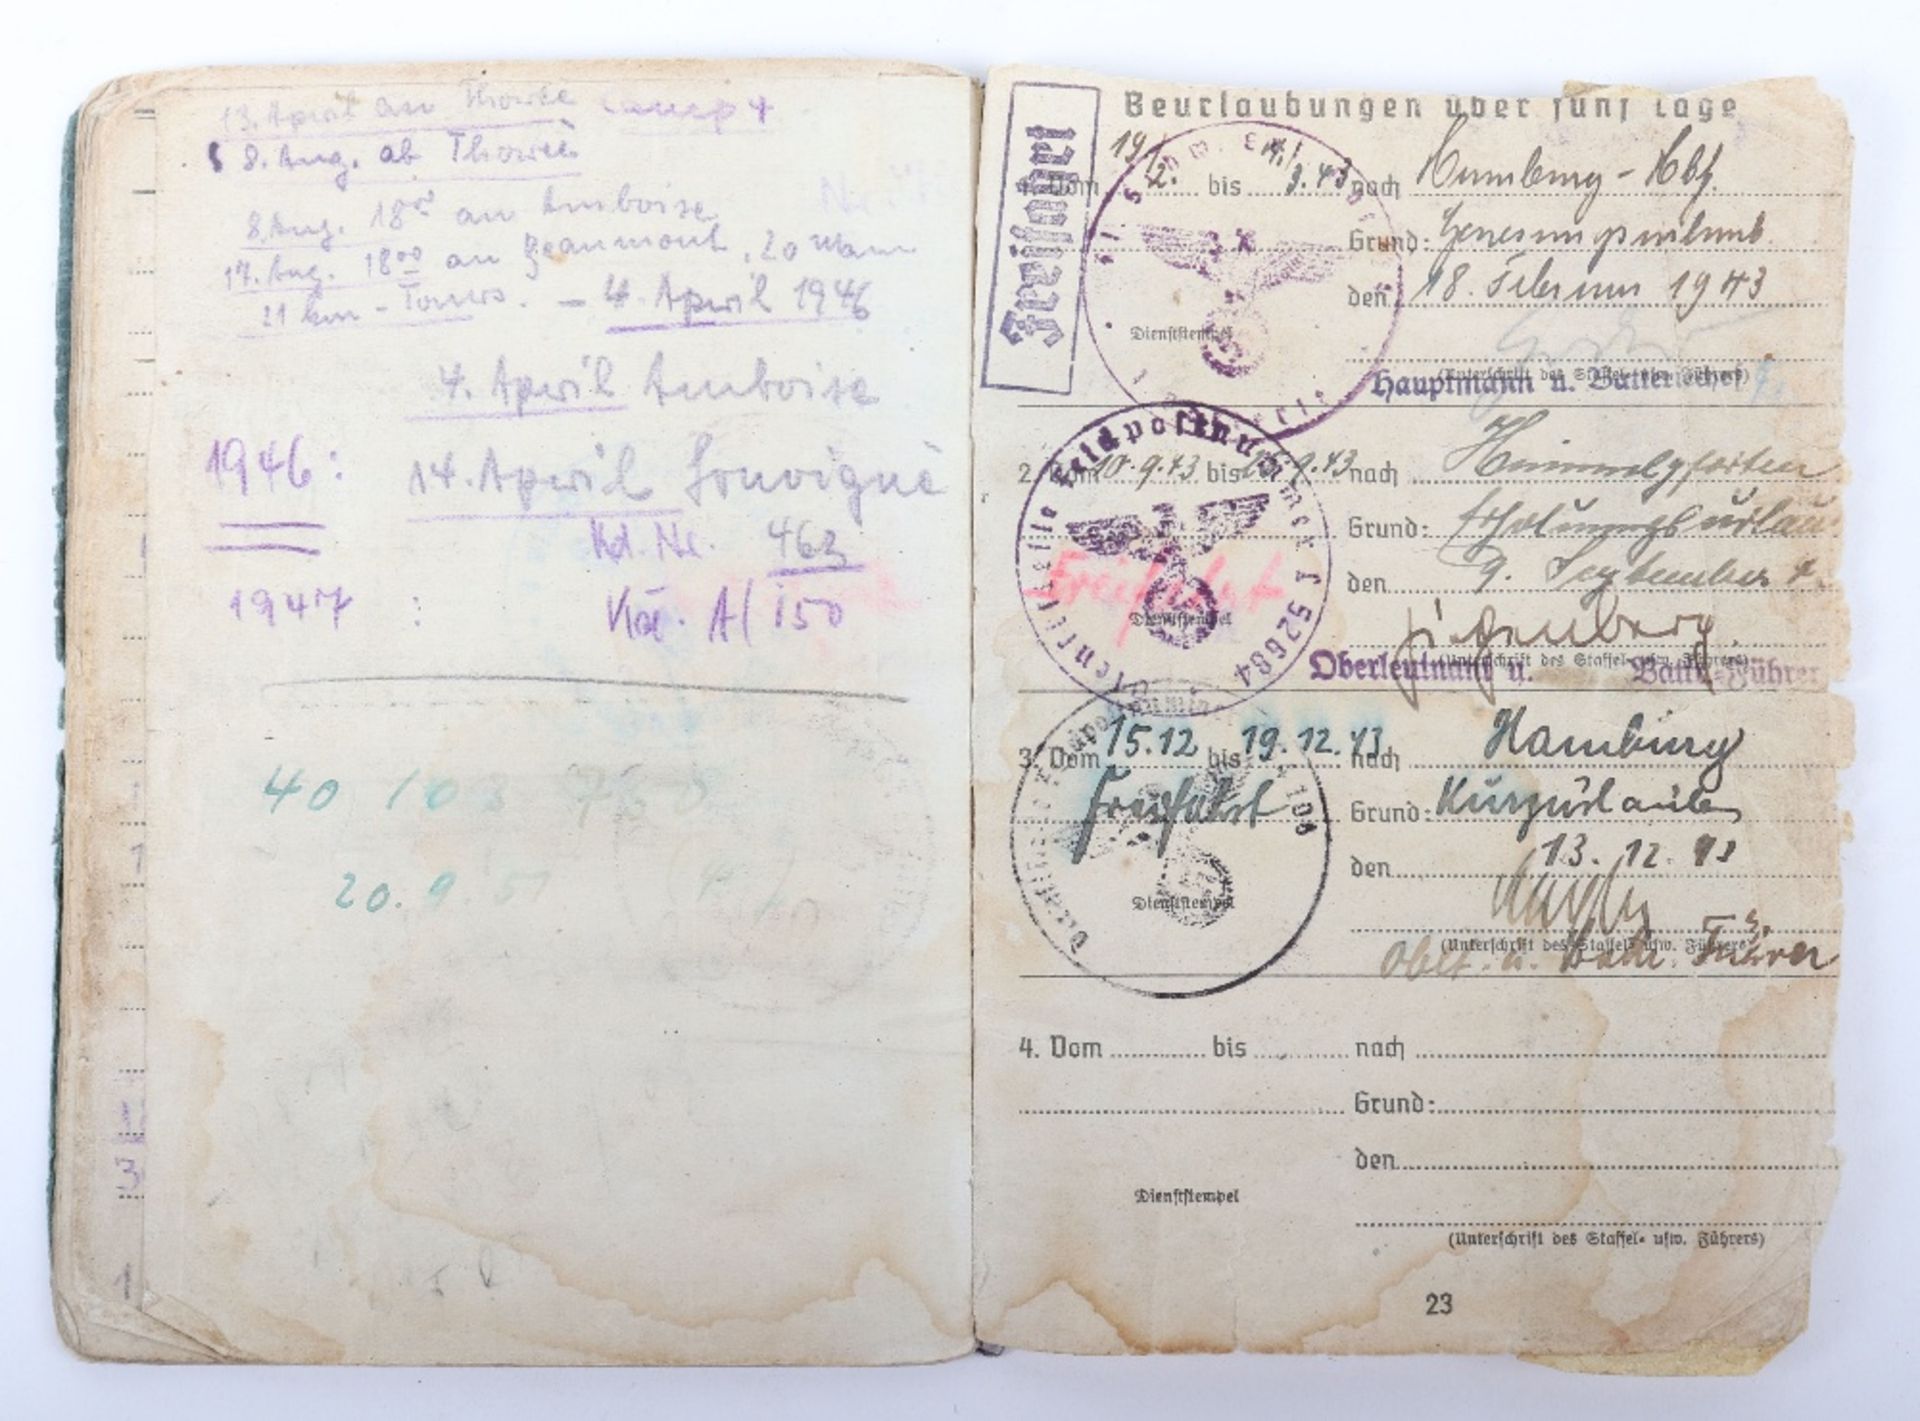 13. April an Thorée Camp 4
8. Aug. ab Thorée
8. Aug. 18⁰⁰ an Amboise
17. Aug. 18⁰⁰ an Beaumont, 20 Mann
21 km - Tours. - 4. April 1946
4. April Amboise
1946: 14. April Souvigné
Kd. Nr. 463
1947 : A/150
40 103 768
20. 9. 51
3
1
Beurlaubungen über fünf Tage
Freifahrt
1. Vom 19/2. bis 4./3.43 nach Hamburg-Hbf.
Grund: Genesungsurlaub
den 18. Februar 1943
Dienststempel
(Unterschrift des Staffel- usw. Führers)
Hauptmann u. Batteriechef
Dienststelle Feldpostnummer L 52684
2. Vom 10.9.43 bis 9.43 nach Himmelpforten
Grund: Erholungsurlau
Freifahrt
den 9. September 4
Dienststempel
Ziegenberg
(Unterschrift des Staffel- usw. Führers)
Oberleutnant u. Battr.-Führer
3. Vom 15.12 bis 19.12.43 nach Hamburg
Freifahrt Grund: Kurzurlaub
den 13.12.43
Dienststempel
(Unterschrift des Staffel- usw. Führers)
Oblt. u. Battr. Führer
4. Vom bis nach
Grund:
den
Dienststempel
(Unterschrift des Staffel- usw. Führers)
23